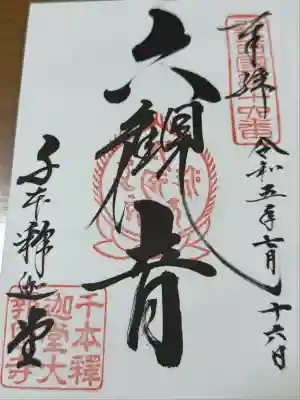 奉拝
令和五年七月十六日
六観音
千本釈迦堂
千本釋
迦堂大
報恩寺